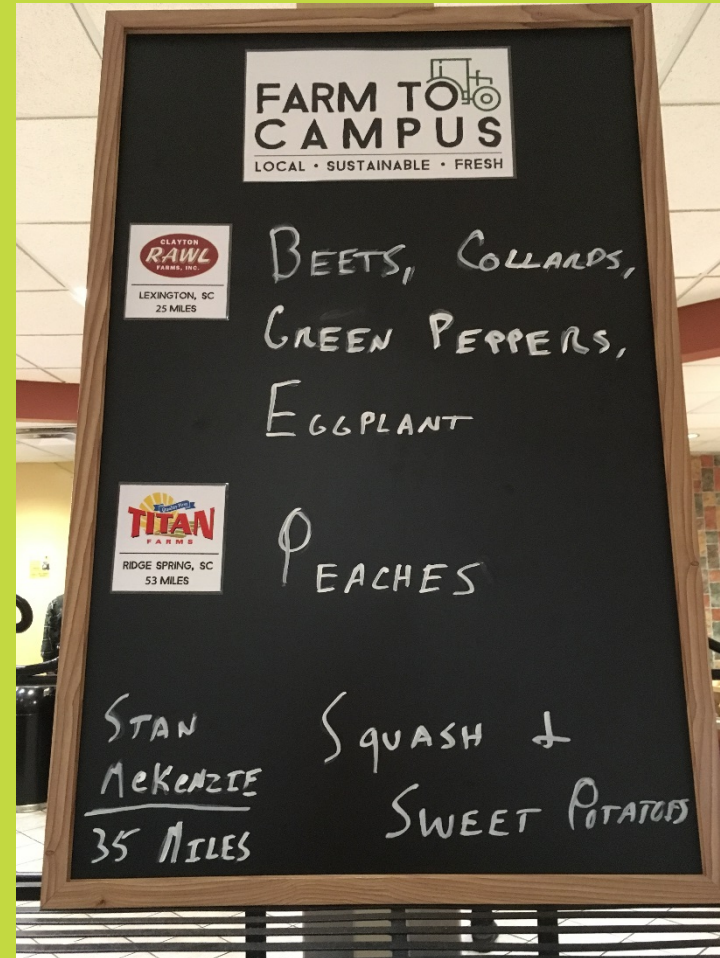 FARM TO
CAMPUS
LOCAL • SUSTAINABLE • FRESH
CLAYTON
RAWL
FARMS, INC.
LEXINGTON, SC
25 MILES
BEETS, COLLARDS,
GREEN PEPPERS,
EGGPLANT
TITAN
FARMS
RIDGE SPRING, SC
53 MILES
PEACHES
STAN
McKENZIE
35 MILES
SQUASH &
SWEET POTATOES